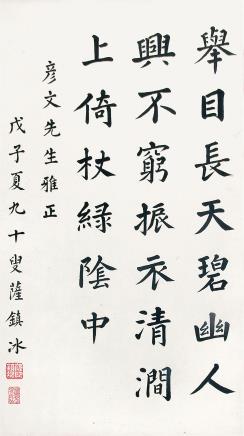 舉目長天碧幽人
興不窮振衣清澗
上倚杖綠陰中
彥文先生雅正
戊子夏九十叟薩鎮冰